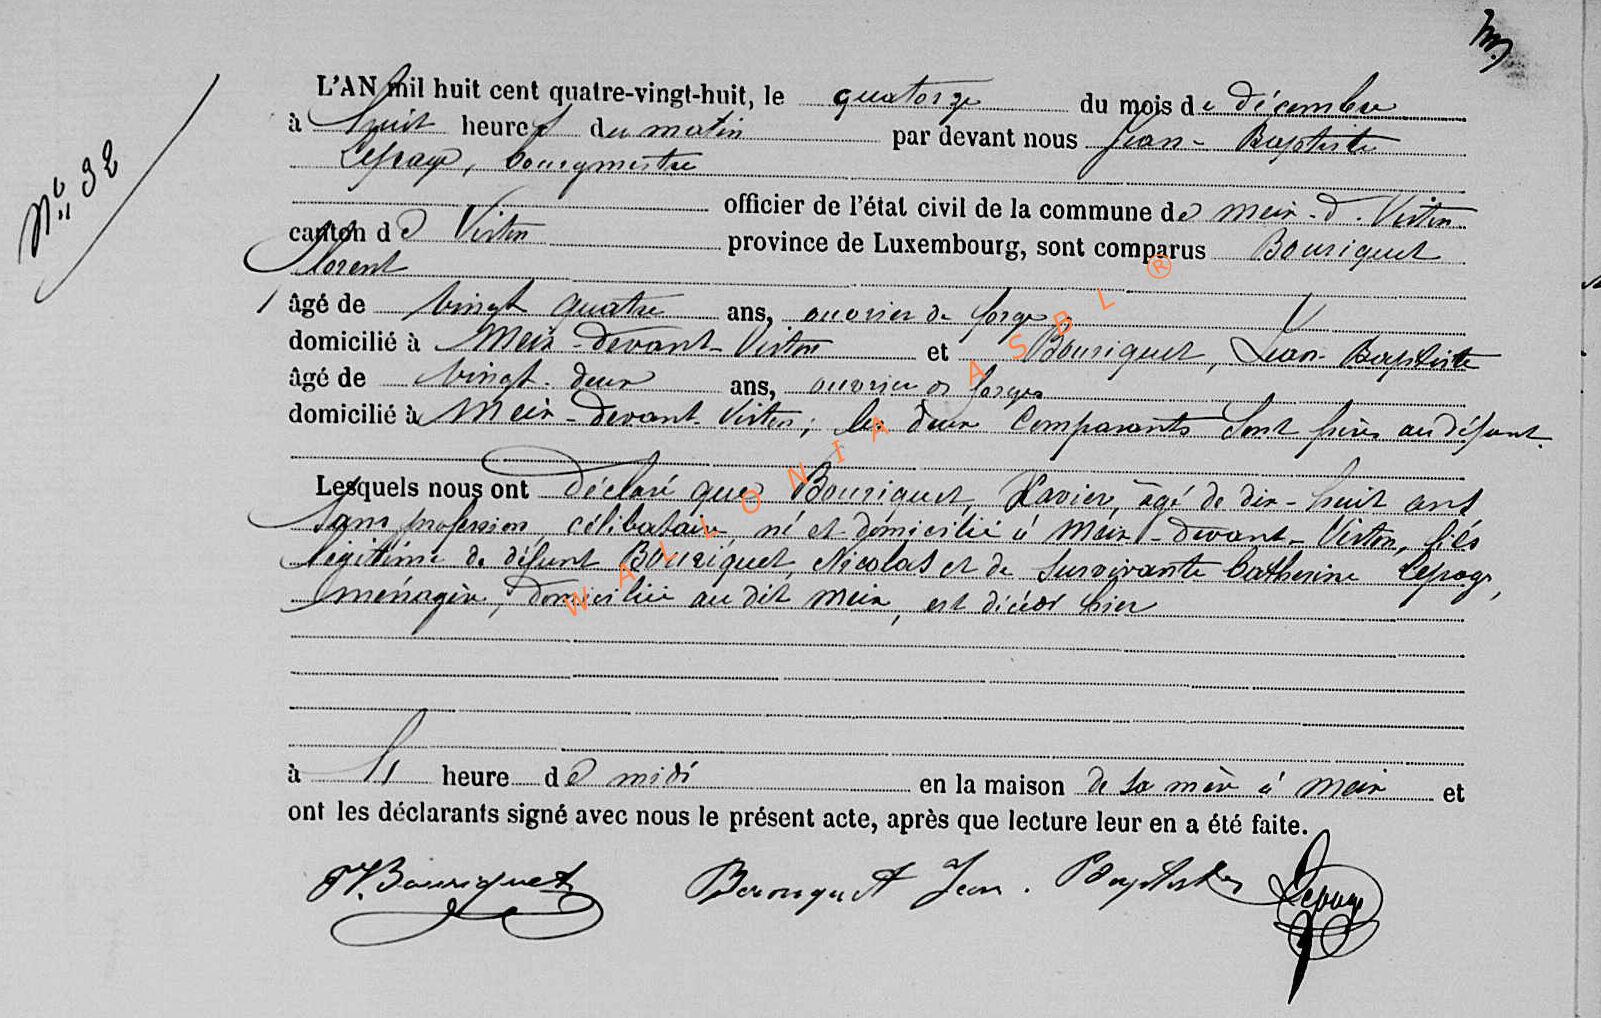 Nº 32
L'AN mil huit cent quatre-vingt-huit, le quatorze du mois de décembre
à huit heures du matin par devant nous Jean-Baptiste
Lepage, bourgmestre
officier de l'état civil de la commune de Meix-d.-Virton
canton de Virton province de Luxembourg, sont comparus Bouriquet
Florent
âgé de vingt quatre ans, ouvrier de forge
domicilié à Meix-devant-Virton et Bouriquet, Jean-Baptiste
âgé de vingt-deux ans, ouvrier de forges
domicilié à Meix-devant-Virton; les deux comparants sont frères au défunt.
Lesquels nous ont déclaré que Bouriquet, Xavier, âgé de dix-huit ans
sans profession, célibataire, né et domicilié à Meix-devant-Virton, fils
légitime de défunt Bouriquet, Nicolas et de survivante Catherine Lepage,
ménagère, domiciliée au dit Meix, est décédé hier
à heure de midi en la maison de sa mère à Meix et
ont les déclarants signé avec nous le présent acte, après que lecture leur en a été faite.
F. Bouriquet Bouriquet Jean. Baptiste Lepage
WALLONIA ASBL ®